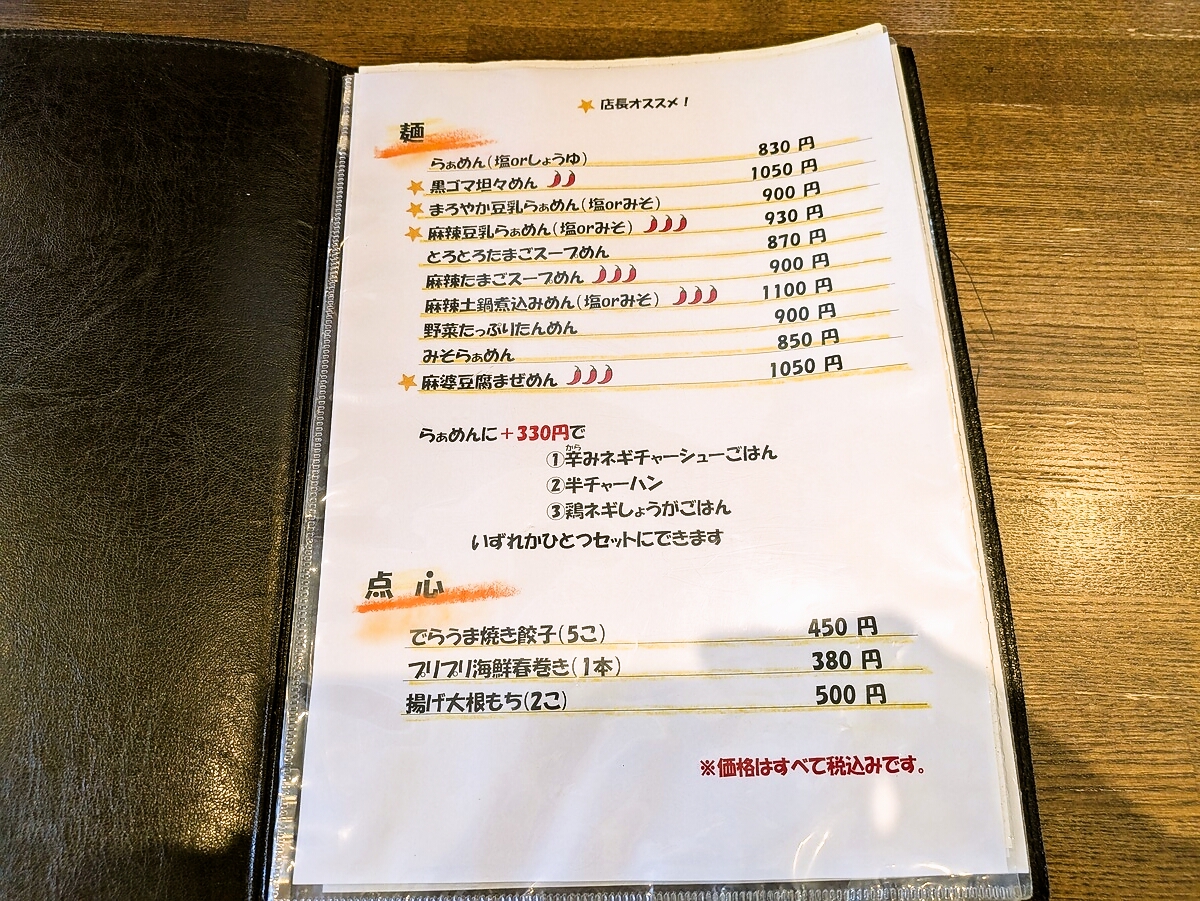 ★店長オススメ！
麺
らぁめん(塩orしょうゆ) 830 円
★黒ゴマ坦々めん 1050 円
★まろやか豆乳らぁめん(塩orみそ) 900 円
★麻辣豆乳らぁめん(塩orみそ) 930 円
とろとろたまごスープめん 870 円
麻辣たまごスープめん 900 円
麻辣土鍋煮込みめん(塩orみそ) 1100 円
野菜たっぷりたんめん 900 円
みそらぁめん 850 円
★麻婆豆腐まぜめん 1050 円
らぁめんに＋330円で
①辛みネギチャーシューごはん
②半チャーハン
③鶏ネギしょうがごはん
いずれかひとつセットにできます
点 心
でらうま焼き餃子(5こ) 450 円
プリプリ海鮮春巻き(1本) 380 円
揚げ大根もち(2こ) 500 円
※価格はすべて税込みです。